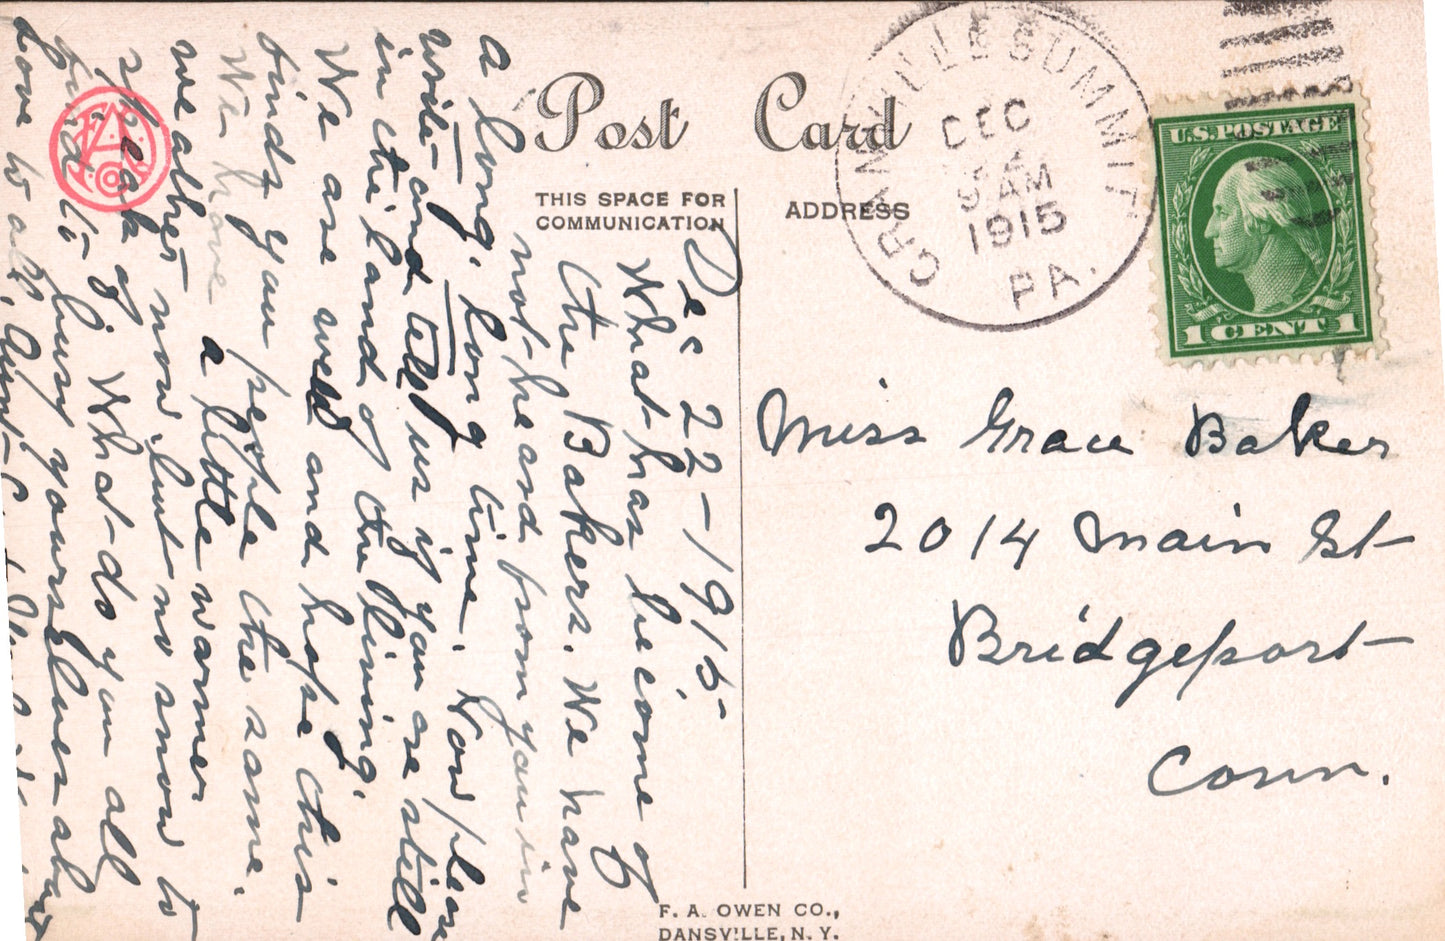 Post Card
THIS SPACE FOR
COMMUNICATION
ADDRESS
GRANVILLE SUMMIT
DEC
9 AM
1915
PA.
U.S. POSTAGE
1 CENT 1
Miss Grace Baker
2014 Main St
Bridgeport
Conn.
Dec 22-1915
What has become of
the Bakers. We have
not heard from you in
a long, long time. Now please
write and tell us if you are still
in the land of the living.
We are well and hope this
finds you people the same.
We have a little warmer
weather now but no snow to
speak of. What do you all
find to busy yourselves about
Love to all, Aunt
F. A. OWEN CO.,
DANSVILLE, N. Y.